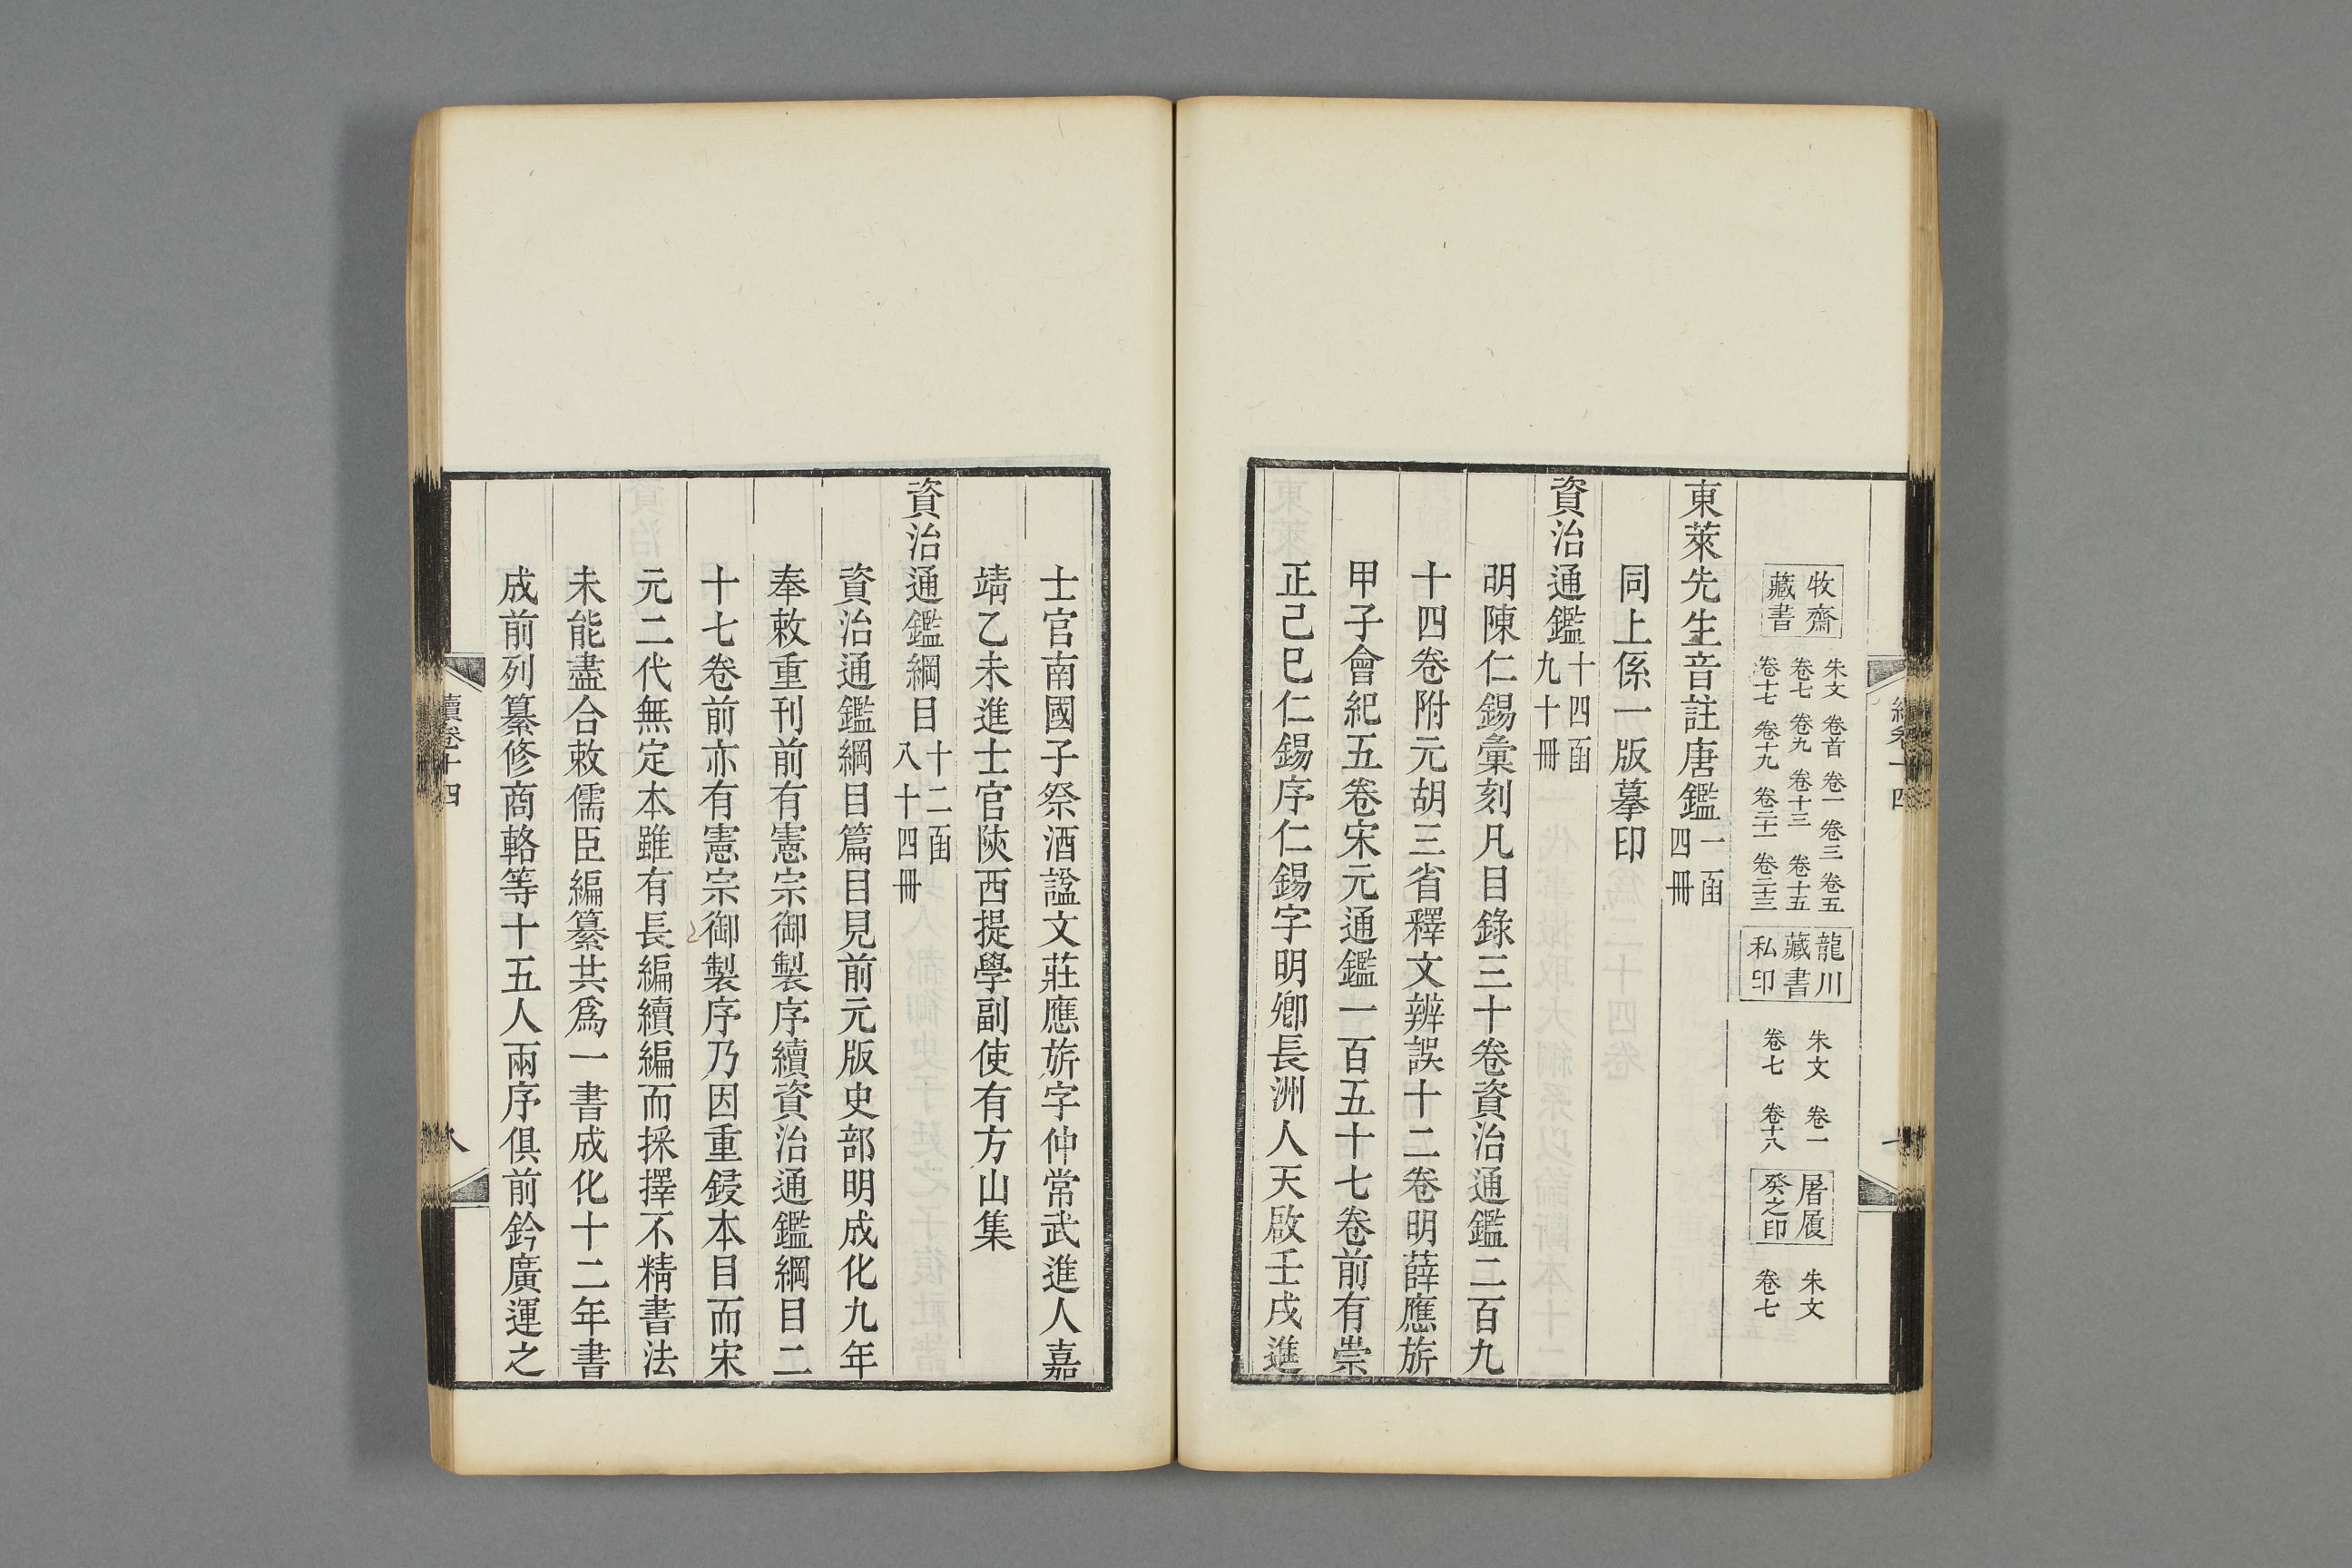 牧齋
藏書
朱文 卷首 卷一 卷三 卷五
卷七 卷九 卷十三 卷十五
卷十七 卷十九 卷二十一 卷二十三
龍川
藏書
私印
朱文 卷一
卷七 卷十八
屠履
癸之印
朱文
卷七
東萊先生音註唐鑑
一函
四冊
同上係一版摹印
資治通鑑
十四函
九十冊
胡陳仁錫彙刻凡目錄三十卷資治通鑑二百九
十四卷附元胡三省釋文辨誤十二卷明薛應旂
甲子會紀五卷宋元通鑑一百五十七卷前有崇
正己巳仁錫序仁錫字明卿長洲人天啟壬戌進
士官南國子祭酒諡文莊應旂字仲常武進人嘉
靖乙未進士官陝西提學副使有方山集
資治通鑑綱目
十二函
八十四冊
資治通鑑綱目篇目見前元版史部明成化九年
奉敕重刊前有憲宗御製序續資治通鑑綱目二
十七卷前亦有憲宗御製序乃因重鋟本目而宋
元二代無定本雖有長編續編而採擇不精書法
未能盡合敕儒臣編纂共爲一書成化十二年書
成前列纂修商輅等十五人兩序俱前鈐廣運之
續卷十四
八